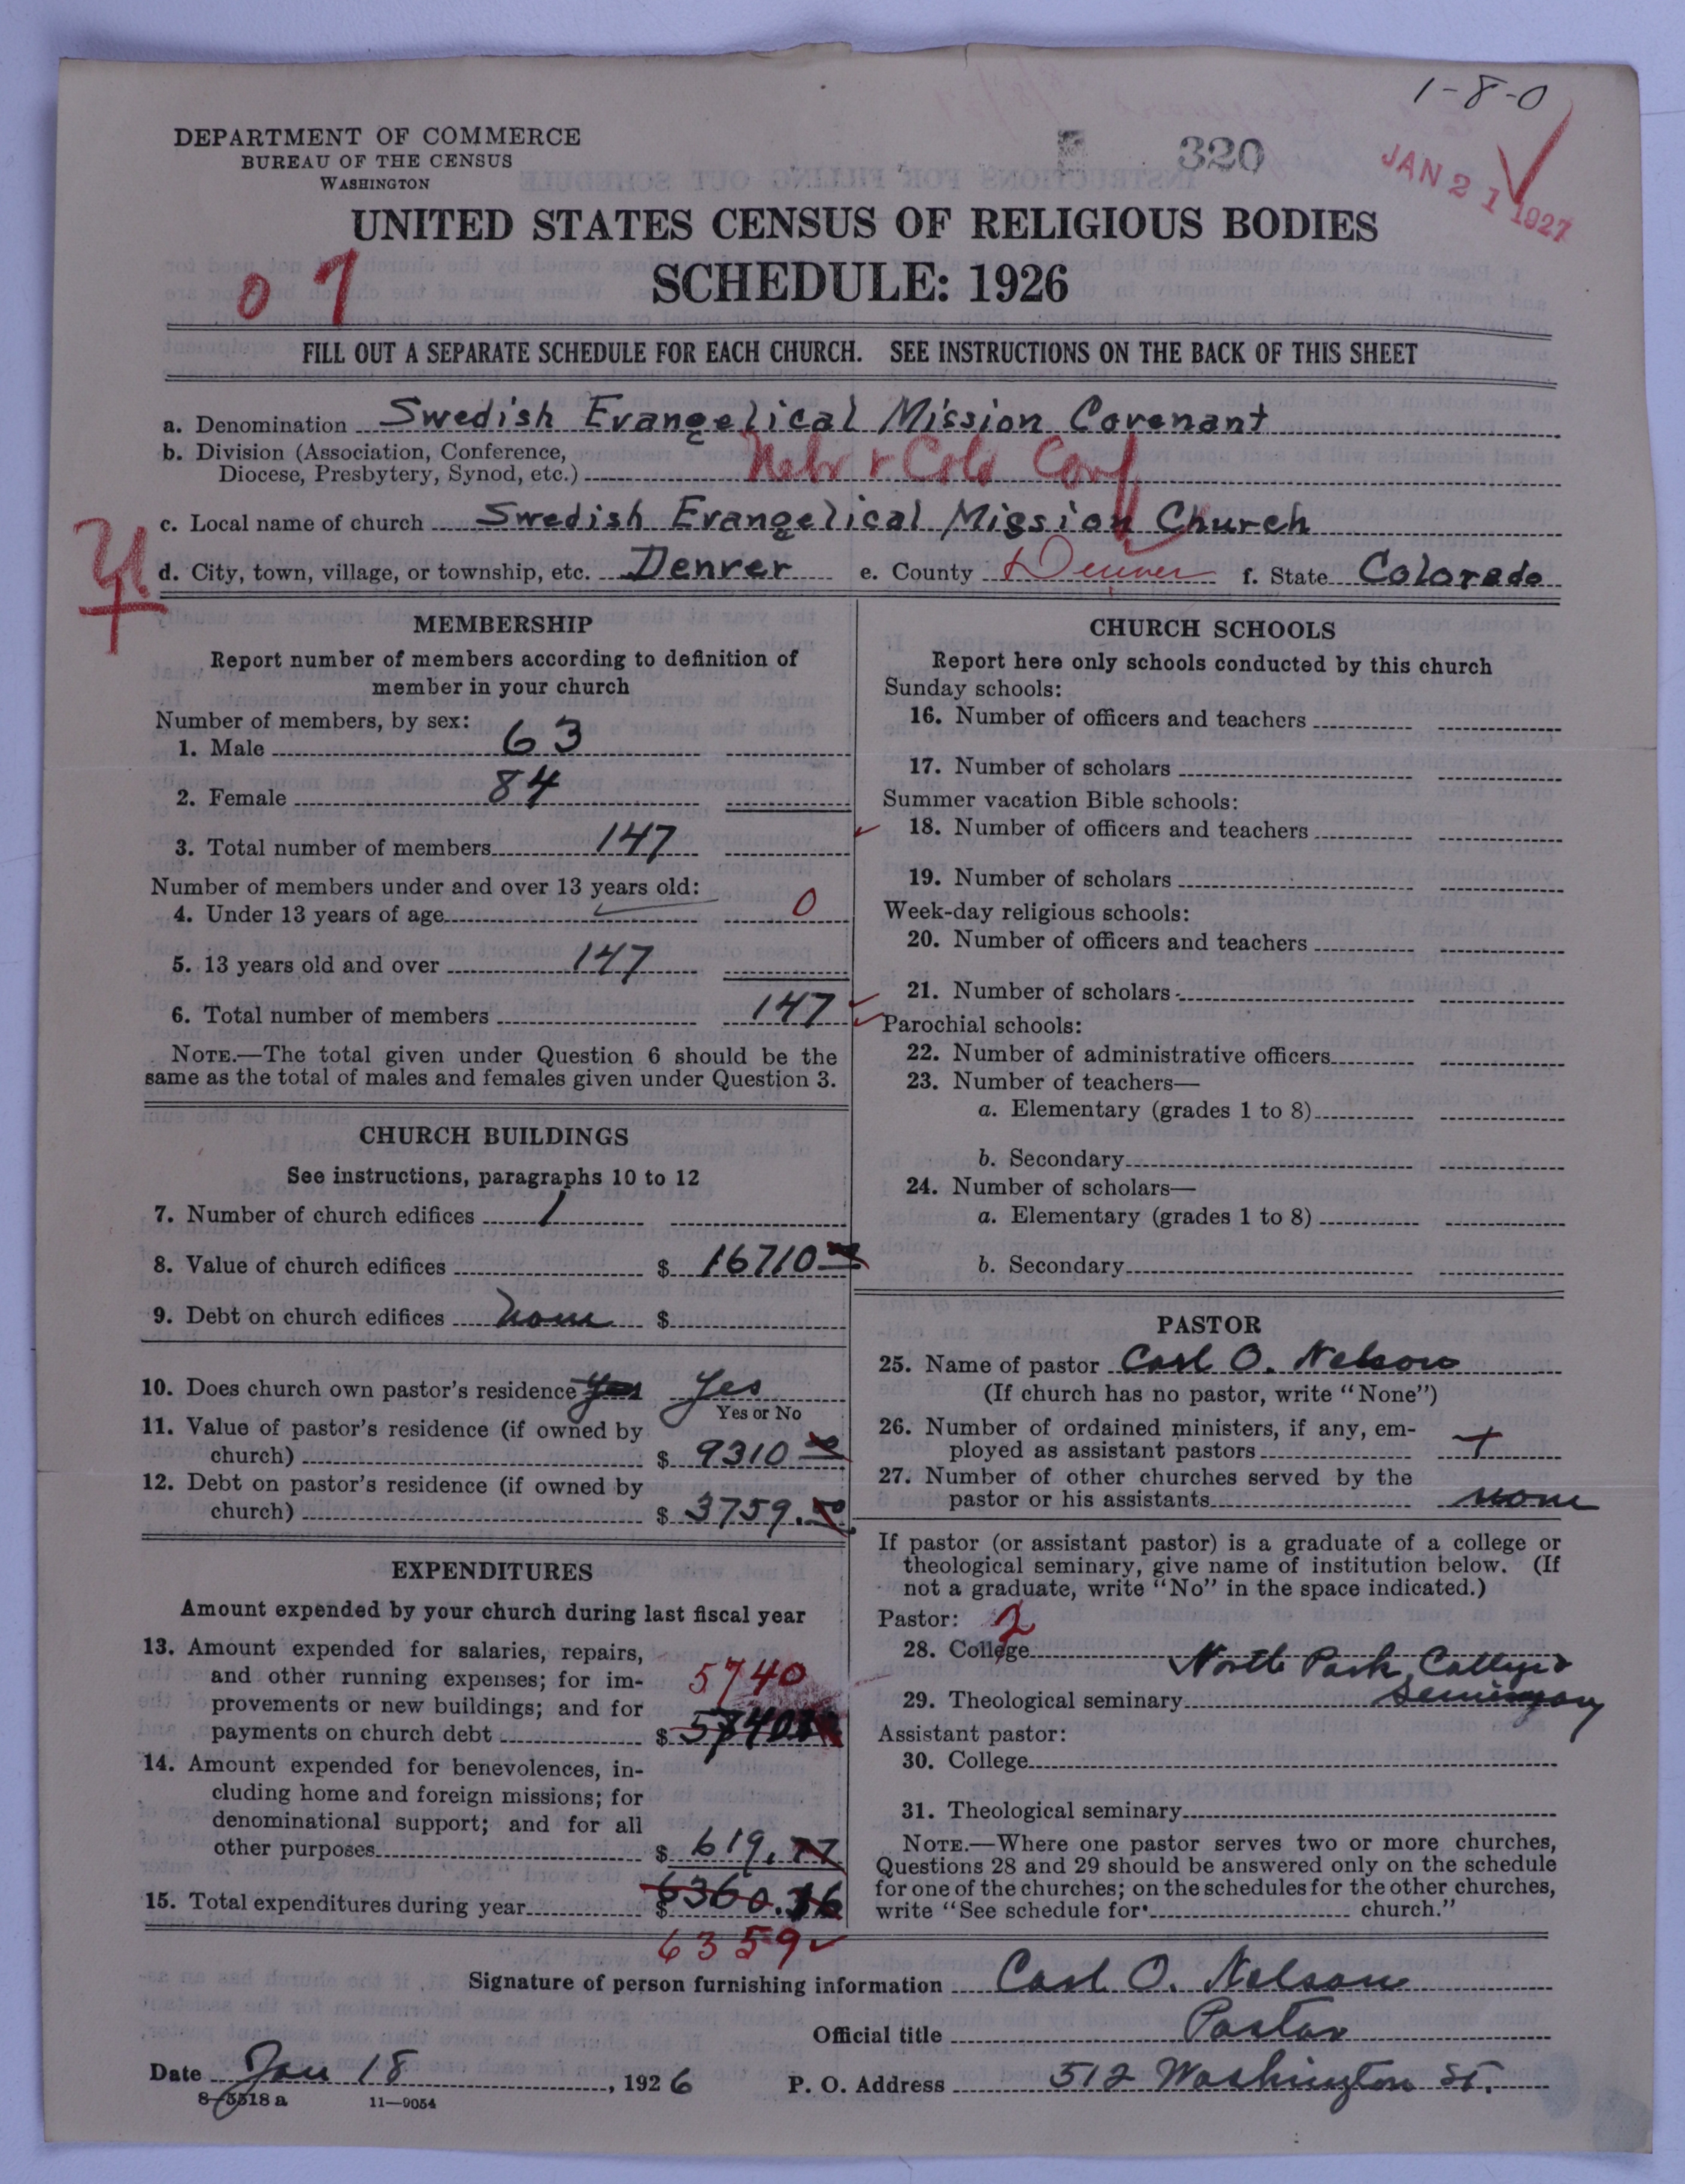 1-8-0
DEPARTMENT OF COMMERCE
BUREAU OF THE CENSUS
WASHINGTON
320
JAN 21 1927
UNITED STATES CENSUS OF RELIGIOUS BODIES
SCHEDULE: 1926
FILL OUT A SEPARATE SCHEDULE FOR EACH CHURCH. SEE INSTRUCTIONS ON THE BACK OF THIS SHEET
a. Denomination Swedish Evangelical Mission Covenant
b. Division (Association, Conference,
Diocese, Presbytery, Synod, etc.) Nebr & Colo Conf
c. Local name of church Swedish Evangelical Mission Church
d. City, town, village, or township, etc. Denver e. County Denver f. State Colorado
MEMBERSHIP
Report number of members according to definition of
member in your church
Number of members, by sex:
1. Male 63
2. Female 84
3. Total number of members 147
Number of members under and over 13 years old:
4. Under 13 years of age 0
5. 13 years old and over 147
6. Total number of members 147
NOTE.—The total given under Question 6 should be the
same as the total of males and females given under Question 3.
CHURCH BUILDINGS
See instructions, paragraphs 10 to 12
7. Number of church edifices 1
8. Value of church edifices $ 16710
9. Debt on church edifices none $
10. Does church own pastor's residence yes Yes
Yes or No
11. Value of pastor's residence (if owned by
church) $ 9310
12. Debt on pastor's residence (if owned by
church) $ 3759.
EXPENDITURES
Amount expended by your church during last fiscal year
13. Amount expended for salaries, repairs,
and other running expenses; for im-
provements or new buildings; and for
payments on church debt $
5740
14. Amount expended for benevolences, in-
cluding home and foreign missions; for
denominational support; and for all
other purposes $ 619.77
15. Total expenditures during year $ 6360.16
6359
CHURCH SCHOOLS
Report here only schools conducted by this church
Sunday schools:
16. Number of officers and teachers
17. Number of scholars
Summer vacation Bible schools:
18. Number of officers and teachers
19. Number of scholars
Week-day religious schools:
20. Number of officers and teachers
21. Number of scholars
Parochial schools:
22. Number of administrative officers
23. Number of teachers—
a. Elementary (grades 1 to 8)
b. Secondary
24. Number of scholars—
a. Elementary (grades 1 to 8)
b. Secondary
PASTOR
25. Name of pastor Carl O. Nelson
(If church has no pastor, write "None")
26. Number of ordained ministers, if any, em-
ployed as assistant pastors
27. Number of other churches served by the
pastor or his assistants none
If pastor (or assistant pastor) is a graduate of a college or
theological seminary, give name of institution below. (If
not a graduate, write "No" in the space indicated.)
Pastor: 2
28. College North Park College &
29. Theological seminary Seminary
Assistant pastor:
30. College
31. Theological seminary
NOTE.—Where one pastor serves two or more churches,
Questions 28 and 29 should be answered only on the schedule
for one of the churches; on the schedules for the other churches,
write "See schedule for church."
Signature of person furnishing information Carl O. Nelson
Official title Pastor
Date Jan 18, 1926 P. O. Address 512 Washington St.
8-5518 a 11—9054